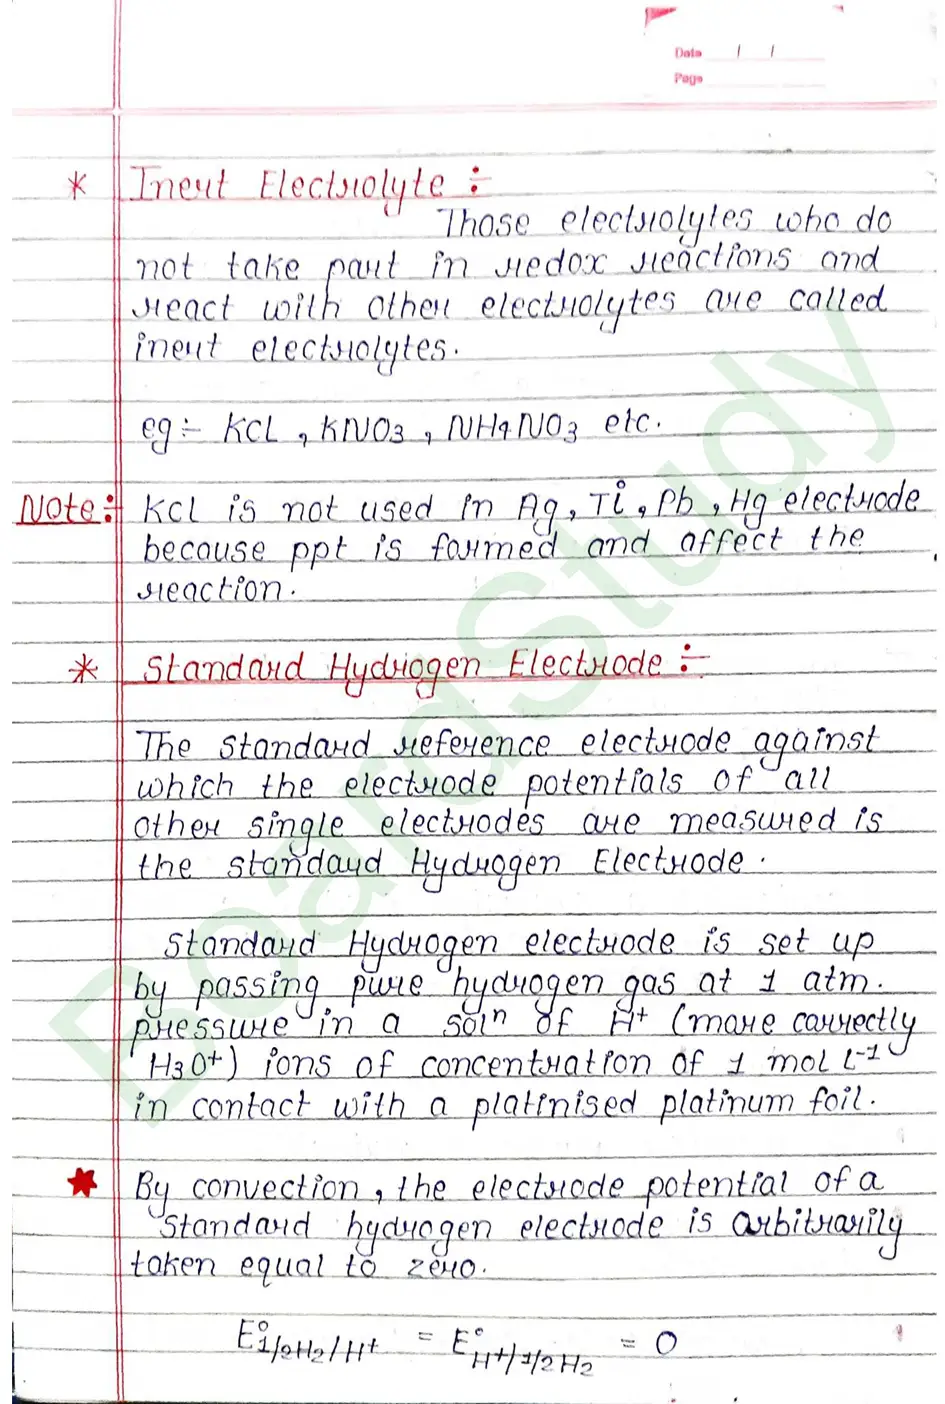 Date / /
Page
* Inert Electrolyte :-
Those electrolytes who do
not take part in redox reactions and
react with other electrolytes are called
inert electrolytes.
eg :- KCL , KNO3 , NH4NO3 etc.
Note :- KCl is not used in Ag, Ti, Pb, Hg electrode
because ppt is formed and affect the
reaction.
* Standard Hydrogen Electrode :-
The standard reference electrode against
which the electrode potentials of all
other single electrodes are measured is
the standard Hydrogen Electrode.
Standard Hydrogen electrode is set up
by passing pure hydrogen gas at 1 atm.
pressure in a solⁿ of H⁺ (more correctly
H3O⁺) ions of concentration of 1 mol L⁻¹
in contact with a platinised platinum foil.
★ By convection, the electrode potential of a
standard hydrogen electrode is arbitrarily
taken equal to zero.
E°1/2H2/H⁺ = E°H⁺/1/2H2 = 0
BoardStudy